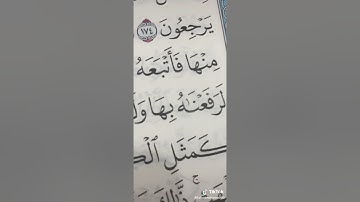 يَرْجِعُونَ ١٧٤
مِنْهَا فَأَتْبَعَهُ
لَرَفَعْنَٰهُ بِهَا وَلَ
كَمَثَلِ ٱلْكَ
ذَّٰلِكَ
TikTok